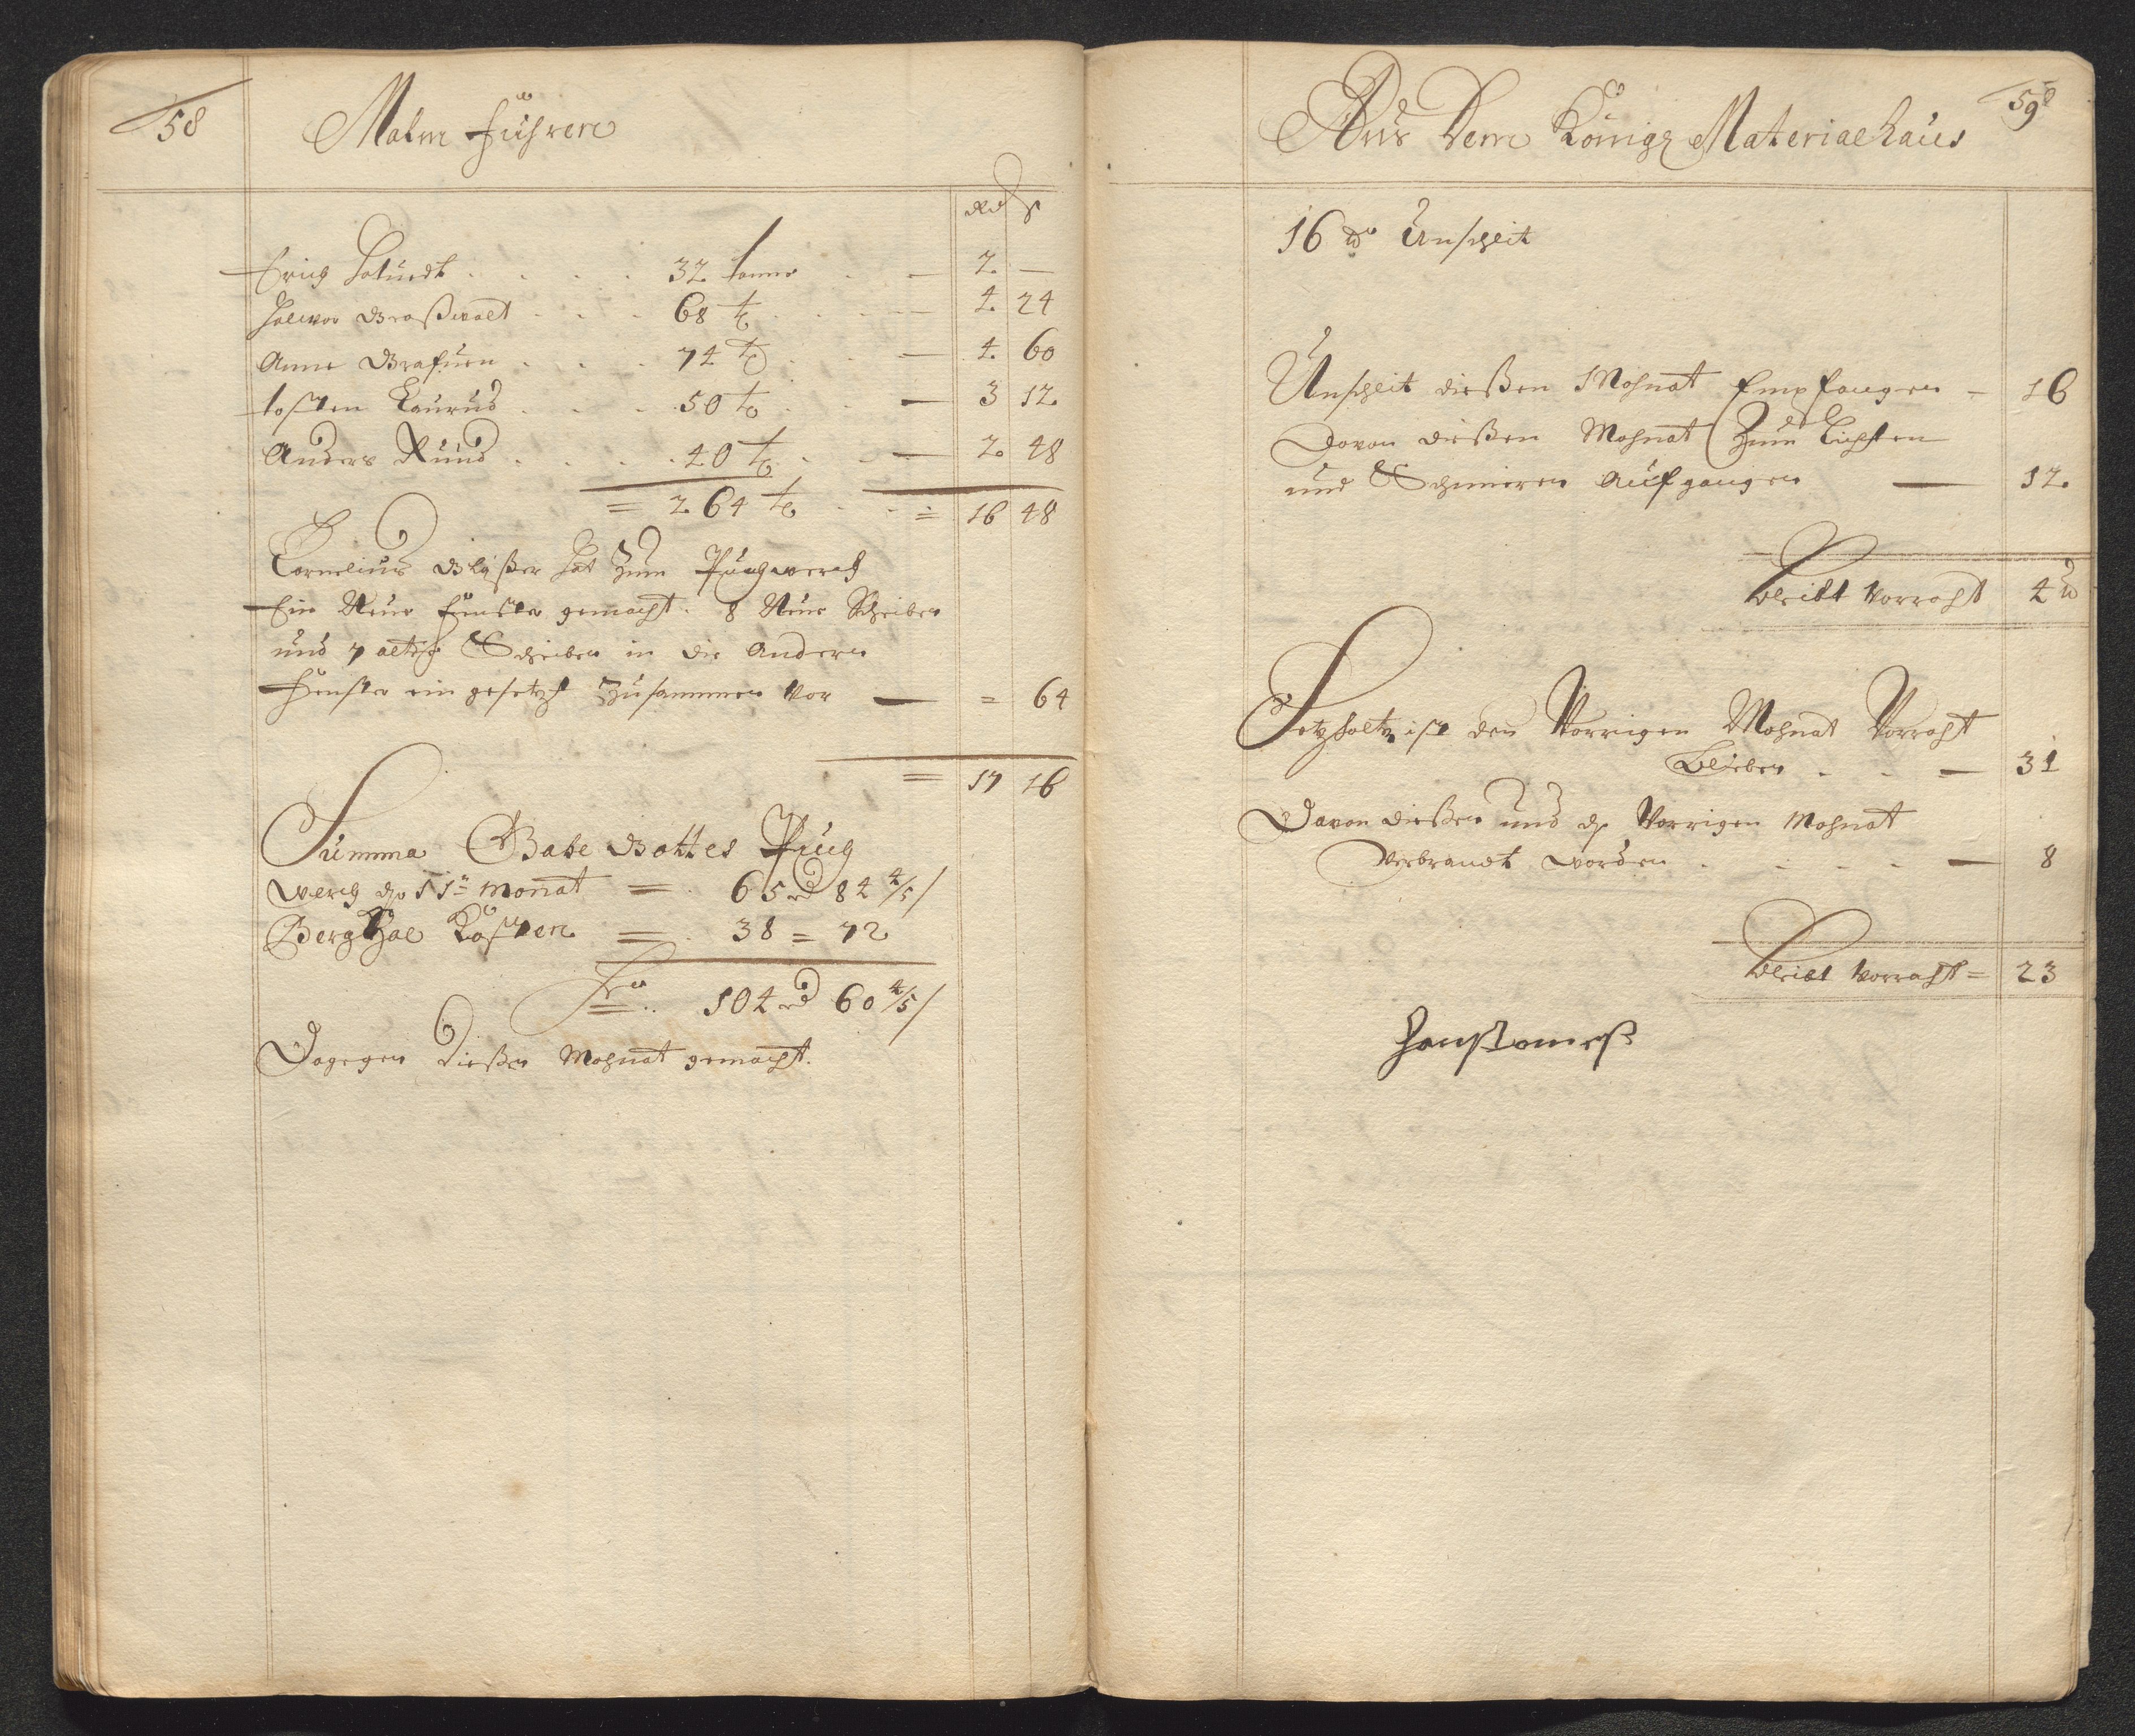 58
Malm führen
Rd ß
Erich 32 tonne — 2 —
Halvor 68 t — 4 24
Anne 74 t — 4 60
tosten Laurus 50 t — 3 12
Anders Ruud 40 t — 2 48
= 264 t = 16 48
Cornelius Glaßer hat zum Puchwerch
Ein Neue fenster gemacht. 8 Neue Scheiben
und 7 alte Scheiben in die Andern
fenster ein gesetzt Zusammen vor — = 64
= 17 16
Summa Gabe Gottes Puch
werch 11 Monat = 65 rd 84 4/5
Berg Kosten = 38 = 72
104 rd 60 4/5
Dagegen dießen Mohnat gemacht.
59
Aus Dem Königl Materialhaus
16 Unschlit
Unschlit dießen Mohnat Empfangen — 16
Davon dießen Mohnat Zum Lichten
und Schmieren Aufgangen — 12
bleibt Vorraht 4
Setzholtz ist den Vorrigen Mohnat Vorraht
Blieben — 31
Davon dießen und Vorrigen Mohnat
verbrandt worden — 8
bleibt Vorraht = 23